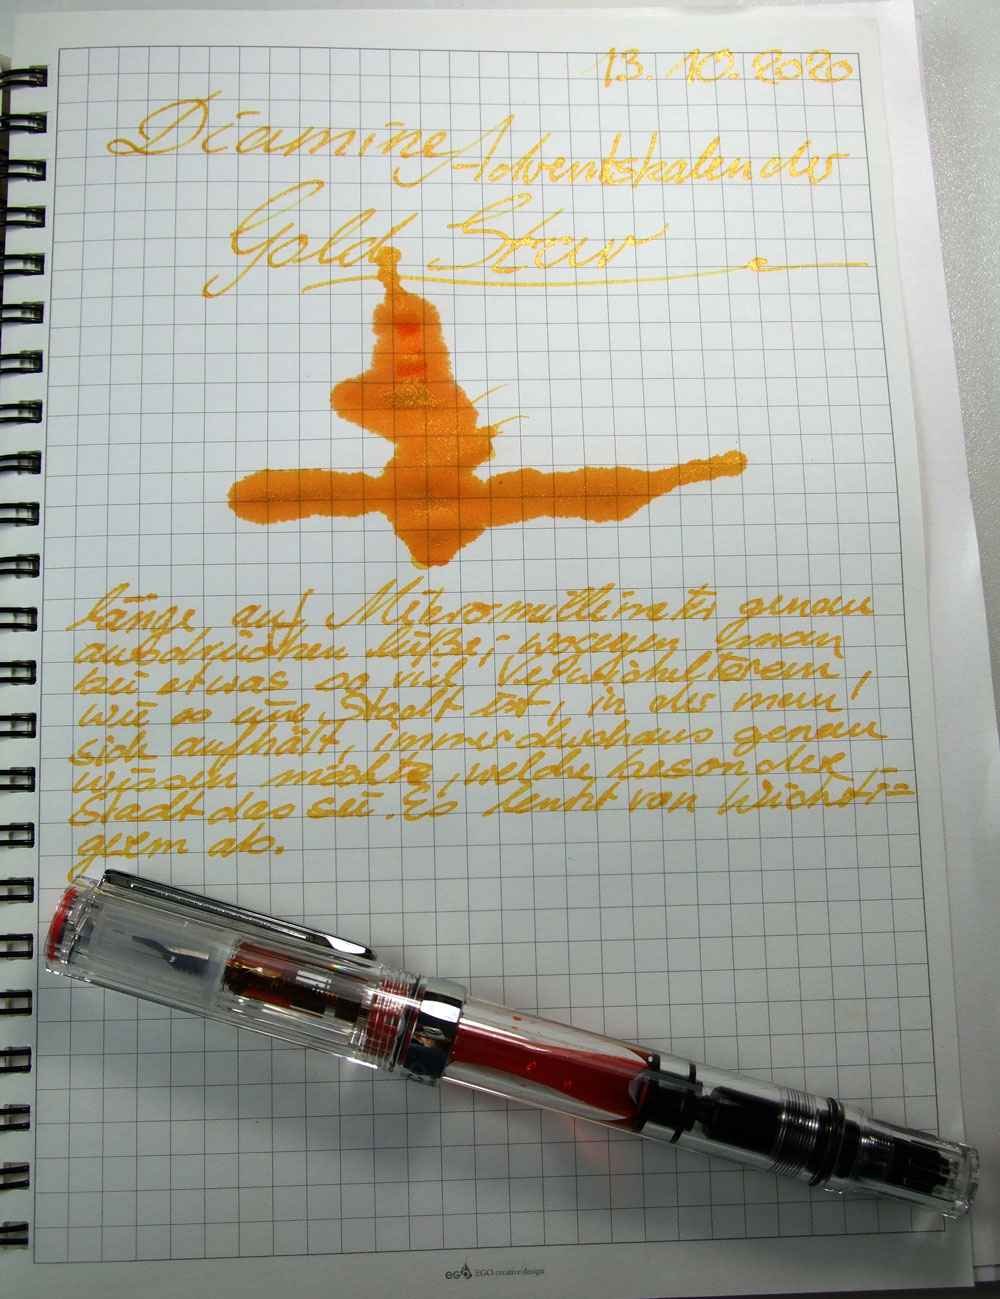 13.10.2020
Diamine Adventskalender
Gold Star
länge auf Mikromillimeter genau
ausdrücken ließe; wogegen man
bei etwas so viel Verwickelterem,
wie es eine Stadt ist, in der man
sich aufhält, immer durchaus genau
wissen möchte, welche besondere
Stadt das sei. Es lenkt von Wichti=
gerem ab.
ego EGO creative design